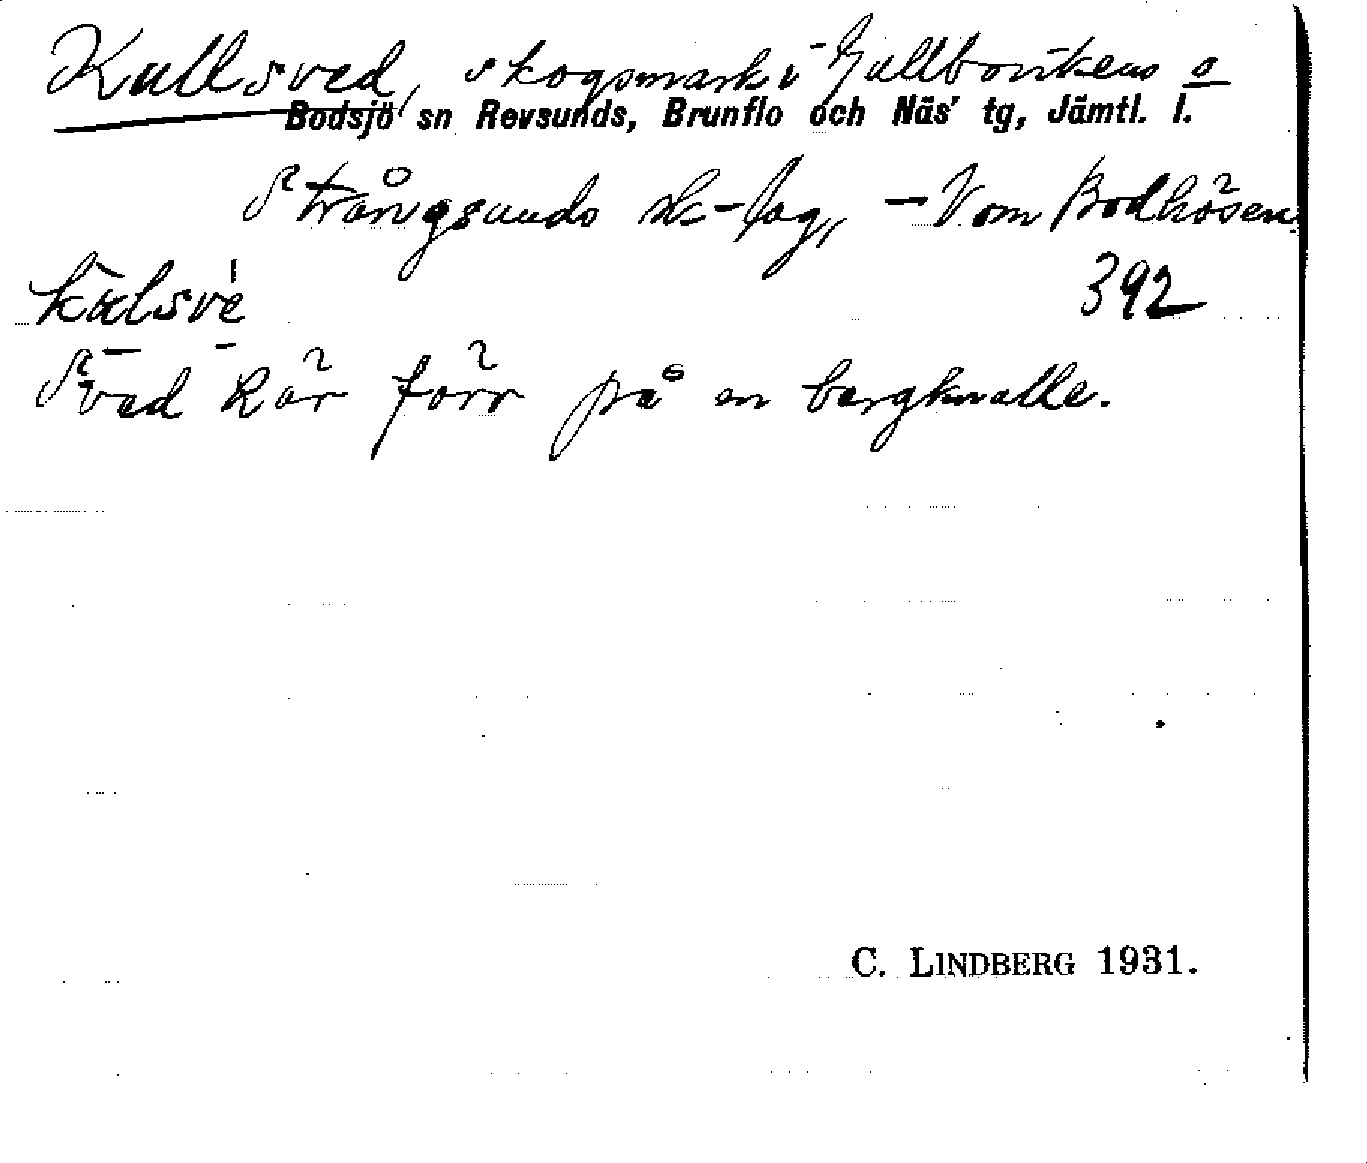 Kullsved, skogsmark i Gullbovikens o
Bodsjö sn Revsunds, Brunflo och Näs' tg, Jämtl. l.
Strångsunds sk-lag, - V om Bodhösen
392
Sved kär förr på en bergknalle.
C. LINDBERG 1931.